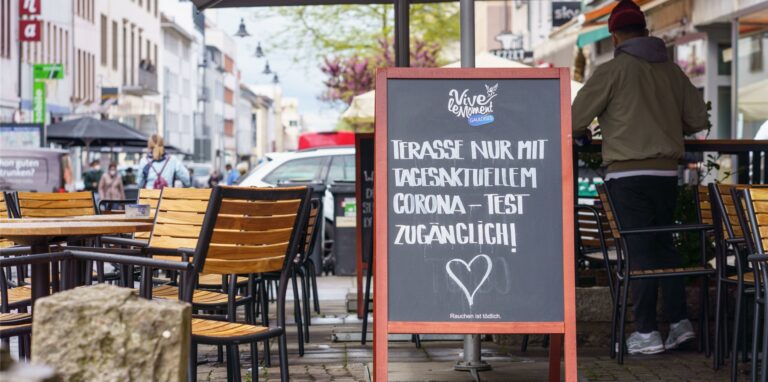 Vive
le Moment
GAULOISES
TERASSE NUR MIT
TAGESAKTUELLEM
CORONA – TEST
ZUGÄNGLICH!
Rauchen ist tödlich.